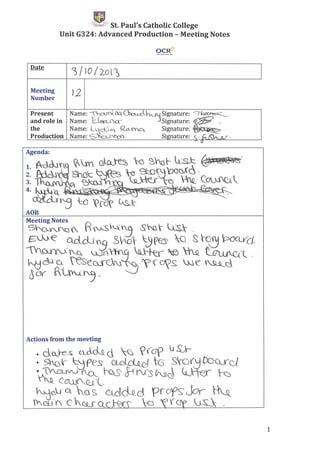 St. Paul's Catholic College
Unit G324: Advanced Production – Meeting Notes
OCR
Date 3/10/2013
Meeting Number 12
Present and role in the Production
Name: Thamina Choudhury Signature:
Name: Eleanor Signature:
Name: Lydia Rama Signature:
Name: Shannon Signature: S. fisher
Agenda:
1. Adding film dates to shot list
2. Adding shot types to storyboard.
3. Thamina starting letter to the council
4. Lydia
adding to prop list
AOB
Meeting Notes
Shannon finishing shot list.
Ellie adding shot types to storyboard.
Thamina writing letter to the council.
Lydia researching props we need
for filming.
Actions from the meeting
• dates added to prop list
• shot types added to storyboard
• Thamina has finished letter to
the council
Lydia has added props for the
main characters to prop list.
1